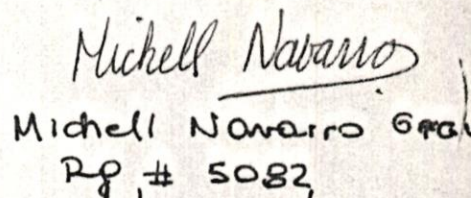 Michell Navarro
Michell Navarro
Rg # 5082